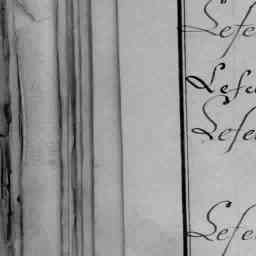 Lefe
Lefe
Lefe
Lefe